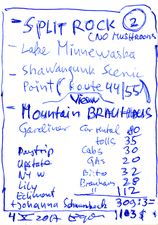 - SPLIT ROCK 2
(NO Mushrooms)
- Lake Minnewaska
- Shawangunk Scenic
Point (Route 44/55)
View
- Mountain BRAUHAUS
Gardiner Car Rental 80
tolls 35
Daytrip Cabs 30
Upstate GAS 20
NYW Bitto 32
Lily Brauhaus 28
112
+ Johanna
4 X 2017 1103 $